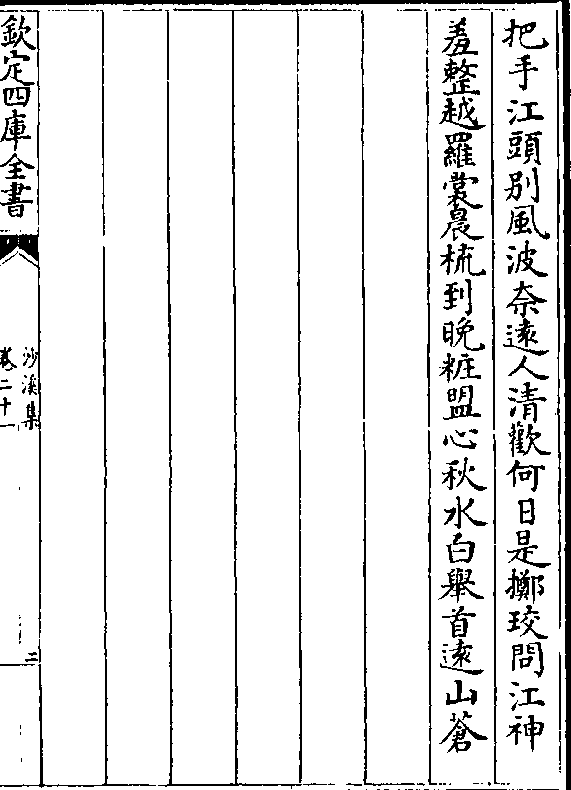 把手江頭别風波奈逺人清歡何日是擲珓問江神
羞整越羅裳晨梳到晚粧盟心秋水白舉首逺山蒼
欽定四庫全書
沙溪集
卷二十一
二